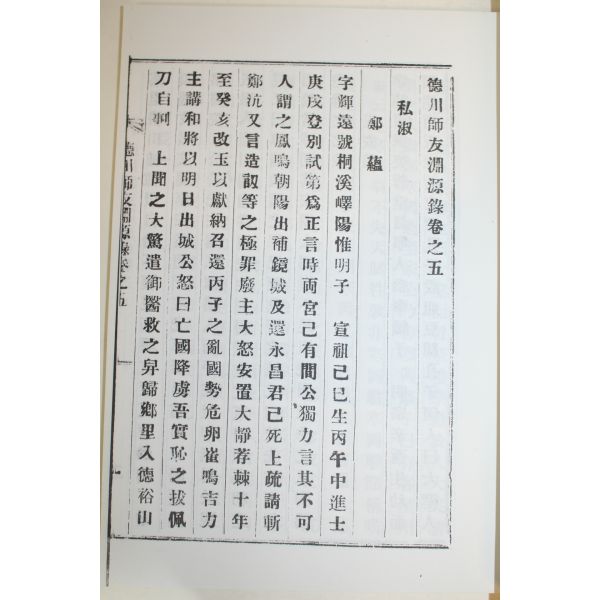 德川師友淵源錄卷之五
私淑
鄭蘊
字輝遠號桐溪嶧陽惟明子　宣祖己巳生丙午中進士
庚戌登別試第爲正言時両宮已有間公獨力言其不可
人謂之鳳鳴朝陽出補鏡城及還永昌君已死上疏請斬
鄭沆又言造訒等之極罪廢主大怒安置大靜荐棘十年
至癸亥改玉以獻納召還丙子之亂國勢危卵崔鳴吉力
主講和將以明日出城公怒曰亡國降虜吾實恥之拔佩
刀自刺　上聞之大驚遣御醫救之舁歸鄉里入德裕山
德川師友淵源錄卷之五